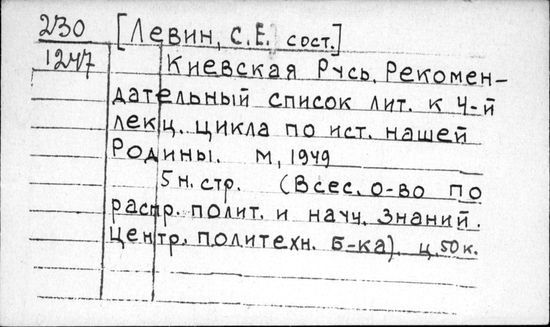 230 [Левин, С.Е. сост.]
1247 Киевская Русь. Рекомен-
дательный список лит. к 4-й
лекц. цикла по ист. нашей
Родины. М, 1949
5 н. стр. (Всес. о-во по
распр. полит. и науч. знаний.
Центр. политехн. б-ка). ц. 50 к.